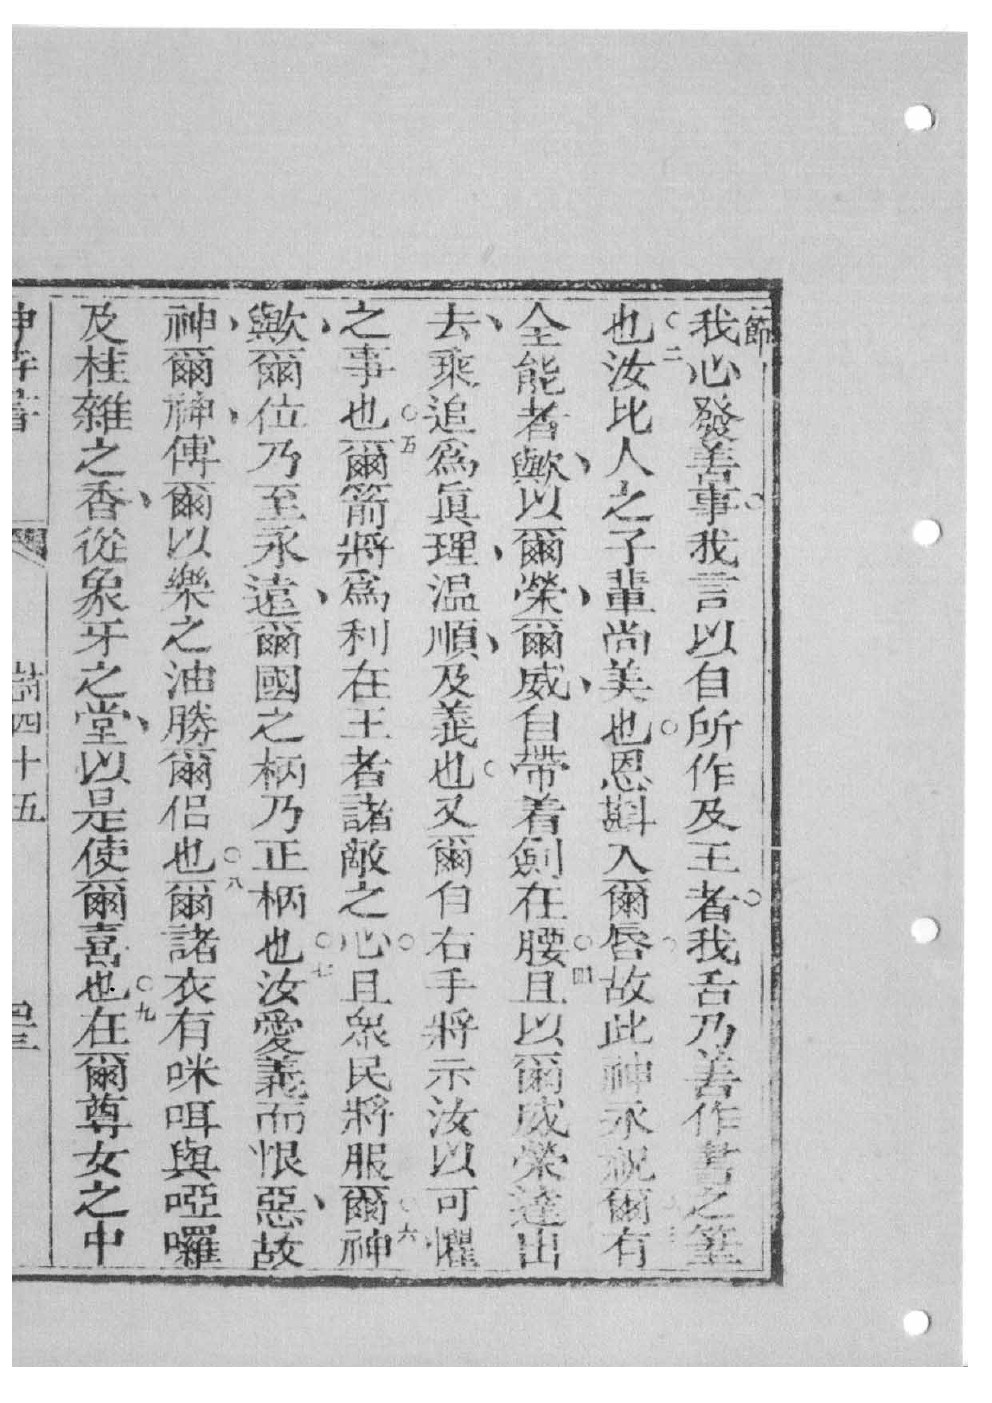 一節我心發善事。我言以自所作及王者。我舌乃善作書之筆
也○二汝比人之子輩尚美也。恩斟入爾唇。故此神永祝爾○三有
全能者歟、以爾榮、爾威、自帶着劍在腰○四且以爾威榮達出
去、乘追爲眞理、温順、及義也。又爾自右手將示汝以可懼
之事也○五爾箭將爲利在王者諸敵之心。且衆民將服爾○六神
歟、爾位乃至永遠、爾國之柄乃正柄也○七汝愛義而恨惡、故
神、爾神、傅爾以樂之油勝爾侶也○八爾諸衣有咪咡與啞囉
及桂雜之香、從象牙之堂、以是使爾喜也○九在爾尊女之中
詩四十五